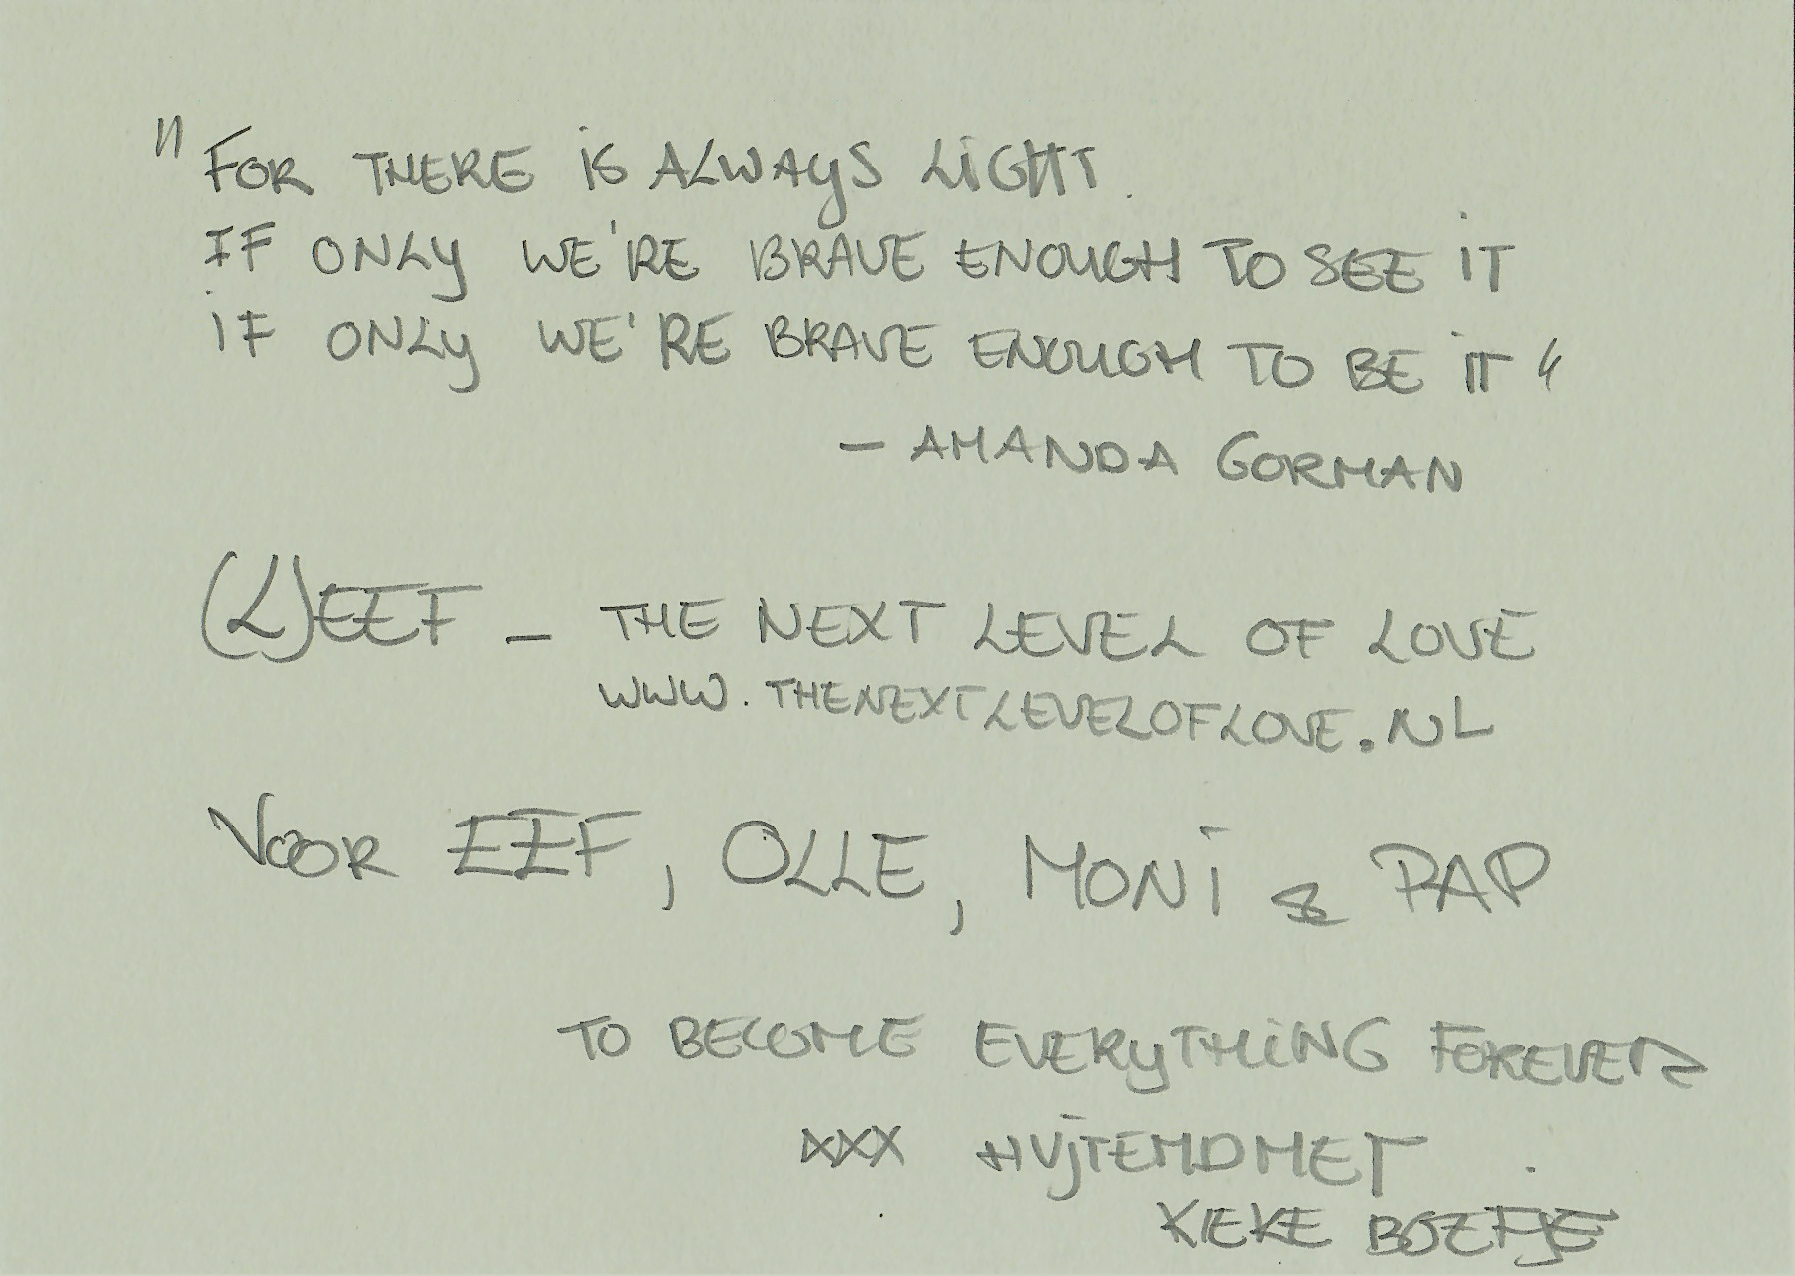 "FOR THERE IS ALWAYS LIGHT.
IF ONLY WE'RE BRAVE ENOUGH TO SEE IT
IF ONLY WE'RE BRAVE ENOUGH TO BE IT"
- AMANDA GORMAN
(L)EEF - THE NEXT LEVEL OF LOVE
WWW.THENEXTLEVELOFLOVE.NL
VOOR EEF, OLLE, MONI & PAP
TO BECOME EVERYTHING FOREVER
XXX
KIEKE BOEFJE